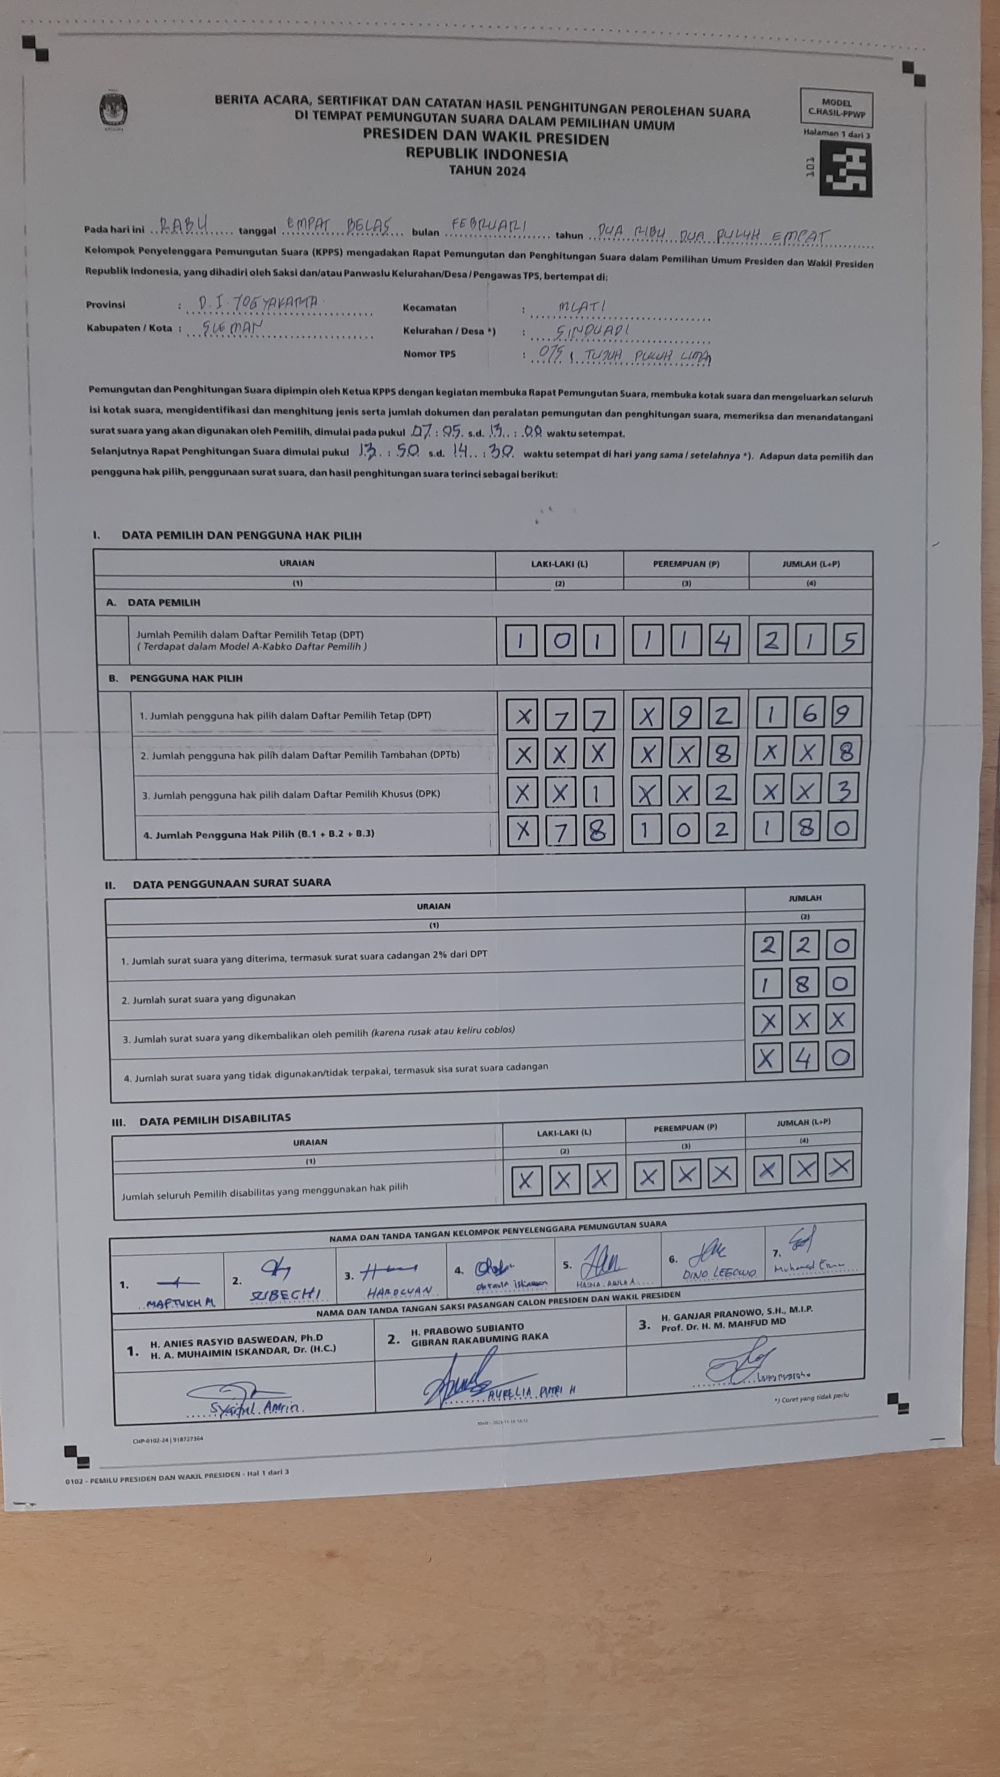 BERITA ACARA, SERTIFIKAT DAN CATATAN HASIL PENGHITUNGAN PEROLEHAN SUARA
DI TEMPAT PEMUNGUTAN SUARA DALAM PEMILIHAN UMUM
PRESIDEN DAN WAKIL PRESIDEN
REPUBLIK INDONESIA
TAHUN 2024
MODEL
C.HASIL-PPWP
Halaman 1 dari 3
101
Pada hari ini RABU tanggal EMPAT BELAS bulan FEBRUARI tahun DUA RIBU DUA PULUH EMPAT
Kelompok Penyelenggara Pemungutan Suara (KPPS) mengadakan Rapat Pemungutan dan Penghitungan Suara dalam Pemilihan Umum Presiden dan Wakil Presiden
Republik Indonesia, yang dihadiri oleh Saksi dan/atau Panwaslu Kelurahan/Desa / Pengawas TPS, bertempat di;
Provinsi : D.I. YOGYAKARTA Kecamatan : MLATI
Kabupaten / Kota : SLEMAN Kelurahan / Desa *) : SINDUADI
Nomor TPS : 075 ( TUJUH PULUH LIMA
Pemungutan dan Penghitungan Suara dipimpin oleh Ketua KPPS dengan kegiatan membuka Rapat Pemungutan Suara, membuka kotak suara dan mengeluarkan seluruh
isi kotak suara, mengidentifikasi dan menghitung jenis serta jumlah dokumen dan peralatan pemungutan dan penghitungan suara, memeriksa dan menandatangani
surat suara yang akan digunakan oleh Pemilih, dimulai pada pukul 07 : 05 s.d. 13 : 00 waktu setempat.
Selanjutnya Rapat Penghitungan Suara dimulai pukul 13 : 50 s.d. 14 : 30 waktu setempat di hari yang sama / setelahnya *). Adapun data pemilih dan
pengguna hak pilih, penggunaan surat suara, dan hasil penghitungan suara terinci sebagai berikut:
I. DATA PEMILIH DAN PENGGUNA HAK PILIH
URAIAN LAKI-LAKI (L) PEREMPUAN (P) JUMLAH (L+P)
(1) (2) (3) (4)
A. DATA PEMILIH
Jumlah Pemilih dalam Daftar Pemilih Tetap (DPT) 1 0 1 1 1 4 2 1 5
( Terdapat dalam Model A-Kabko Daftar Pemilih )
B. PENGGUNA HAK PILIH
1. Jumlah pengguna hak pilih dalam Daftar Pemilih Tetap (DPT) X 7 7 X 9 2 1 6 9
2. Jumlah pengguna hak pilih dalam Daftar Pemilih Tambahan (DPTb) X X X X X 8 X X 8
3. Jumlah pengguna hak pilih dalam Daftar Pemilih Khusus (DPK) X X 1 X X 2 X X 3
4. Jumlah Pengguna Hak Pilih (B.1 + B.2 + B.3) X 7 8 1 0 2 1 8 0
II. DATA PENGGUNAAN SURAT SUARA
URAIAN JUMLAH
(1) (2)
1. Jumlah surat suara yang diterima, termasuk surat suara cadangan 2% dari DPT 2 2 0
2. Jumlah surat suara yang digunakan 1 8 0
3. Jumlah surat suara yang dikembalikan oleh pemilih (karena rusak atau keliru coblos) X X X
4. Jumlah surat suara yang tidak digunakan/tidak terpakai, termasuk sisa surat suara cadangan X 4 0
III. DATA PEMILIH DISABILITAS
URAIAN LAKI-LAKI (L) PEREMPUAN (P) JUMLAH (L+P)
(1) (2) (3) (4)
Jumlah seluruh Pemilih disabilitas yang menggunakan hak pilih X X X X X X X X X
NAMA DAN TANDA TANGAN KELOMPOK PENYELENGGARA PEMUNGUTAN SUARA
1. 2. 3. 4. 5. 6. 7.
MAFTUKH M. SUBECHI HARDIYAN DINO LEGOWO Muhamad
NAMA DAN TANDA TANGAN SAKSI PASANGAN CALON PRESIDEN DAN WAKIL PRESIDEN
1. H. ANIES RASYID BASWEDAN, Ph.D
H. A. MUHAIMIN ISKANDAR, Dr. (H.C.)
2. H. PRABOWO SUBIANTO
GIBRAN RAKABUMING RAKA
3. H. GANJAR PRANOWO, S.H., M.I.P.
Prof. Dr. H. M. MAHFUD MD
Syaiful Amrin. AURELIA PUTRI H
*) Coret yang tidak perlu
CHP-0102-24 | 918727364
0102 - PEMILU PRESIDEN DAN WAKIL PRESIDEN - Hal 1 dari 3